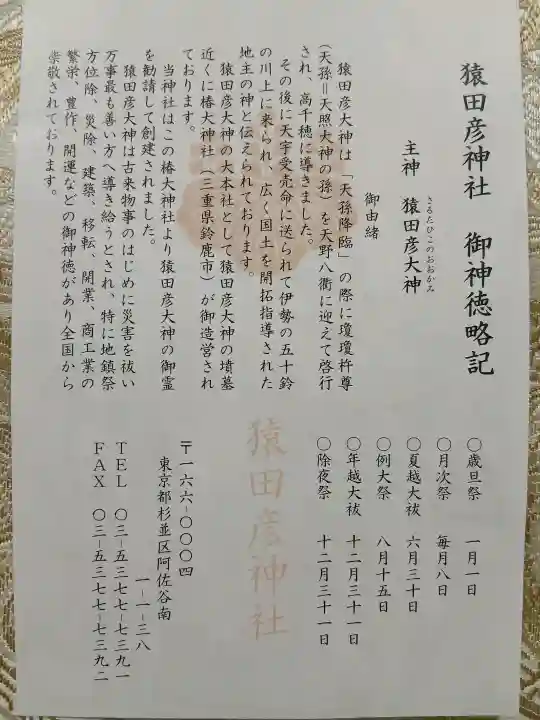 猿田彦神社　御神徳略記
さるたひこのおおかみ
主神　猿田彦大神
御由緒
猿田彦大神は「天孫降臨」の際に瓊瓊杵尊
（天孫＝天照大神の孫）を天野八衢に迎えて啓行
され、高千穂に導きました。
その後に天宇受売命に送られて伊勢の五十鈴
の川上に来られ、広く国土を開拓指導された
地主の神と伝えられております。
猿田彦大神の大本社として猿田彦大神の墳墓
近くに椿大神社（三重県鈴鹿市）が御造営され
ております。
当神社はこの椿大神社より猿田彦大神の御霊
を勧請して創建されました。
猿田彦大神は古来物事のはじめに災害を祓い
万事最も善い方へ導き給うとされ、特に地鎮祭
方位除、災除、建築、移転、開業、商工業の
繁栄、豊作、開運などの御神徳があり全国から
崇敬されております。
〇歳旦祭　一月一日
〇月次祭　毎月八日
〇夏越大祓　六月三十日
〇例大祭　八月十五日
〇年越大祓　十二月三十一日
〇除夜祭　十二月三十一日
猿田彦神社
〒一六六-〇〇〇四
東京都杉並区阿佐谷南
一-一-三八
ＴＥＬ　〇三-五三七七-七三九一
ＦＡＸ　〇三-五三七七-七三九二